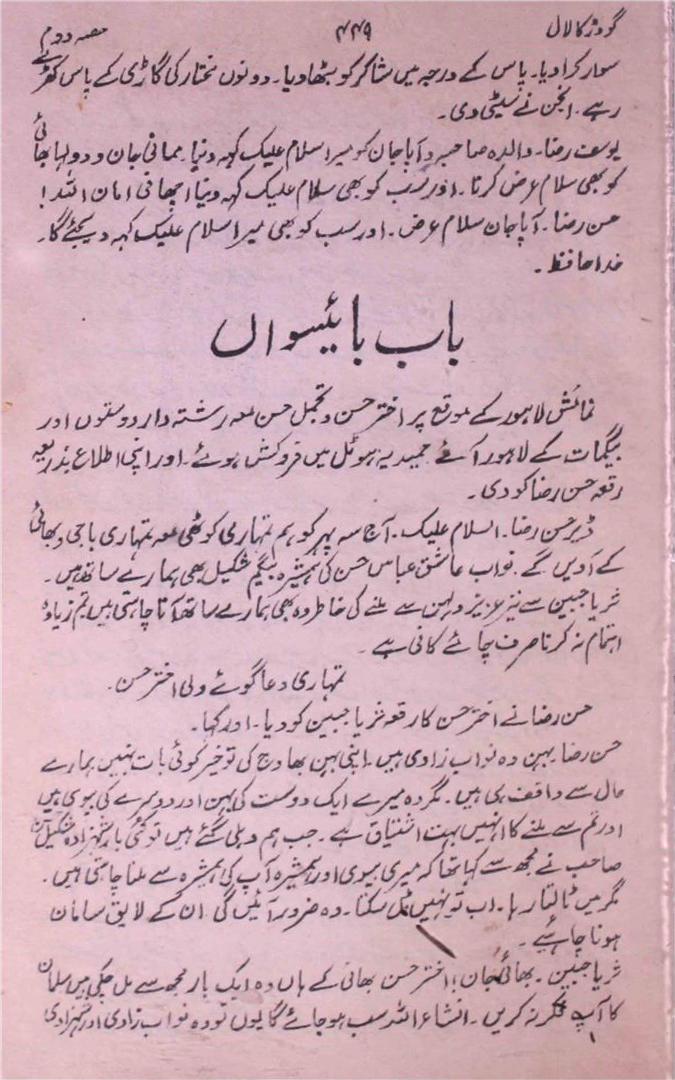 گودڑ کا لال ۴۴۹ حصہ دوم
سوار کرا دیا۔ پاس کے درجہ میں شاکر کو بٹھا دیا۔ دونوں مختار کی گاڑی کے پاس کھڑے
رہے۔ انجن نے سیٹی دی۔
یوسف رضا۔ والدہ صاحبہ و آپا جان کو میرا سلام علیک کہہ دینا۔ ممانی جان و دولہا بھائی
کو بھی سلام عرض کرنا۔ اور سب کو بھی سلام علیک کہہ دینا اچھا فی امان اللہ!
حسن رضا۔ آپا جان سلام عرض۔ اور سب کو بھی میرا سلام علیک کہہ دیجئے گا۔
خدا حافظ۔
باب بائیسواں
نمائش لاہور کے موقع پر اختر حسن و تجمل حسن معہ رشتہ دار دوستوں اور
بیگمات کے لاہور آئے۔ حمیدیہ ہوٹل میں فروکش ہوئے۔ اور اپنی اطلاع بذریعہ
رقعہ حسن رضا کو دی۔
ڈیر حسن رضا۔ السلام علیک۔ آج سہ پہر کو ہم تمہاری کوٹھی معہ تمہاری باجی و بھائی
کے آویں گے۔ نواب عاشق عباس حسن کی ہمشیرہ بیگم شکیل بھی ہمارے ساتھ ہیں۔
ثریا جبین سے نیز عزیز دلہن سے ملنے کی خاطر وہ بھی ہمارے ساتھ آنا چاہتی ہیں تم زیادہ
اہتمام نہ کرنا صرف چائے کافی ہے۔
تمہاری دعا گوئے ولی اختر حسن۔
حسن رضا نے اختر حسن کا رقعہ ثریا جبین کو دیا۔ اور کہا۔
حسن رضا۔ بہن وہ نواب زادی ہیں۔ اپنی بہن بھاوج کی تو خیر کوئی بات نہیں ہمارے
حال سے واقف ہی ہیں۔ مگر وہ میرے ایک دوست کی بہن اور دوسرے کی بیوی ہیں
اور تم سے ملنے کا انہیں بہت اشتیاق ہے۔ جب ہم دہلی گئے ہیں تو کئی بار شہزادہ شکیل
صاحب نے مجھ سے کہا تھا کہ میری بیوی اور ہمشیرہ آپ کی ہمشیرہ سے ملنا چاہتی ہیں۔
مگر میں ٹالتا رہا۔ اب تو نہیں ٹل سکتا۔ وہ ضرور آئیں گی ان کے لایق سامان
ہونا چاہئے۔
ثریا جبین۔ بھائی جان! اختر حسن بھائی کے ہاں وہ ایک بار مجھ سے مل چکی ہیں سامان
کا آپ فکر نہ کریں۔ انشاء اللہ سب ہو جائے گا یوں تو وہ نواب زادی اور شہزادی